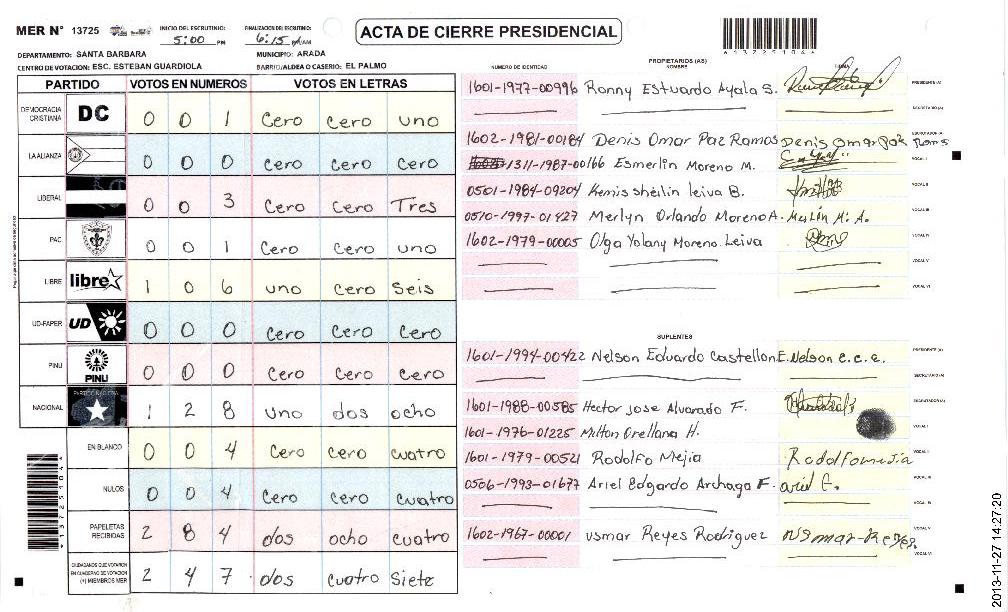 MER N° 13725 INICIO DEL ESCRUTINIO: 5:00 PM FINALIZACION DEL ESCRUTINIO: 6:15 PM/AM ACTA DE CIERRE PRESIDENCIAL
DEPARTAMENTO: SANTA BARBARA MUNICIPIO: ARADA
CENTRO DE VOTACION: ESC. ESTEBAN GUARDIOLA BARRIO/ALDEA O CASERIO: EL PALMO
PARTIDO VOTOS EN NUMEROS VOTOS EN LETRAS
DEMOCRACIA CRISTIANA DC 0 0 1 Cero Cero uno
LA ALIANZA 0 0 0 Cero Cero Cero
LIBERAL 0 0 3 Cero Cero Tres
PAC 0 0 1 Cero Cero uno
LIBRE libre 1 0 6 uno Cero Seis
UD-FAPER UD 0 0 0 Cero Cero Cero
PINU PINU 0 0 0 Cero Cero Cero
NACIONAL 1 2 8 uno dos ocho
EN BLANCO 0 0 4 Cero Cero cuatro
NULOS 0 0 4 Cero Cero cuatro
PAPELETAS RECIBIDAS 2 8 4 dos ocho cuatro
CIUDADANOS QUE VOTARON EN CUADERNO DE VOTACION (+) MIEMBROS MER 2 4 7 dos cuatro Siete
*13725104*
PROPIETARIOS (AS)
NUMERO DE IDENTIDAD NOMBRE FIRMA
1601-1977-00996 Ronny Estuardo Ayala S. PRESIDENTE (A)
SECRETARIO (A)
1602-1981-00184 Denis Omar Paz Ramos Denis Omar Paz Rams ESCRUTADOR (A)
1311-1987-00166 Esmerlin Moreno M. VOCAL I
0501-1984-09204 Kenis sheilin leiva B. VOCAL II
0510-1997-01427 Merlyn Orlando Moreno A. Merlin M. A. VOCAL III
1602-1979-00005 Olga Yolany Moreno Leiva VOCAL IV
VOCAL V
VOCAL VI
SUPLENTES
1601-1994-00422 Nelson Eduardo Castellon E. Nelson e.c.e. PRESIDENTE (A)
SECRETARIO (A)
1601-1988-00585 Hector Jose Alvarado F. ESCRUTADOR (A)
1601-1976-01225 Milton Orellana H. VOCAL I
1601-1979-00521 Rodolfo Mejia Rodolfo mejia VOCAL II
0506-1993-01677 Ariel Edgardo Archaga F. ariel E. VOCAL III
VOCAL IV
1602-1967-00001 usmar Reyes Rodriguez VOCAL V
VOCAL VI
*13725104*
2013-11-27 14:27:20